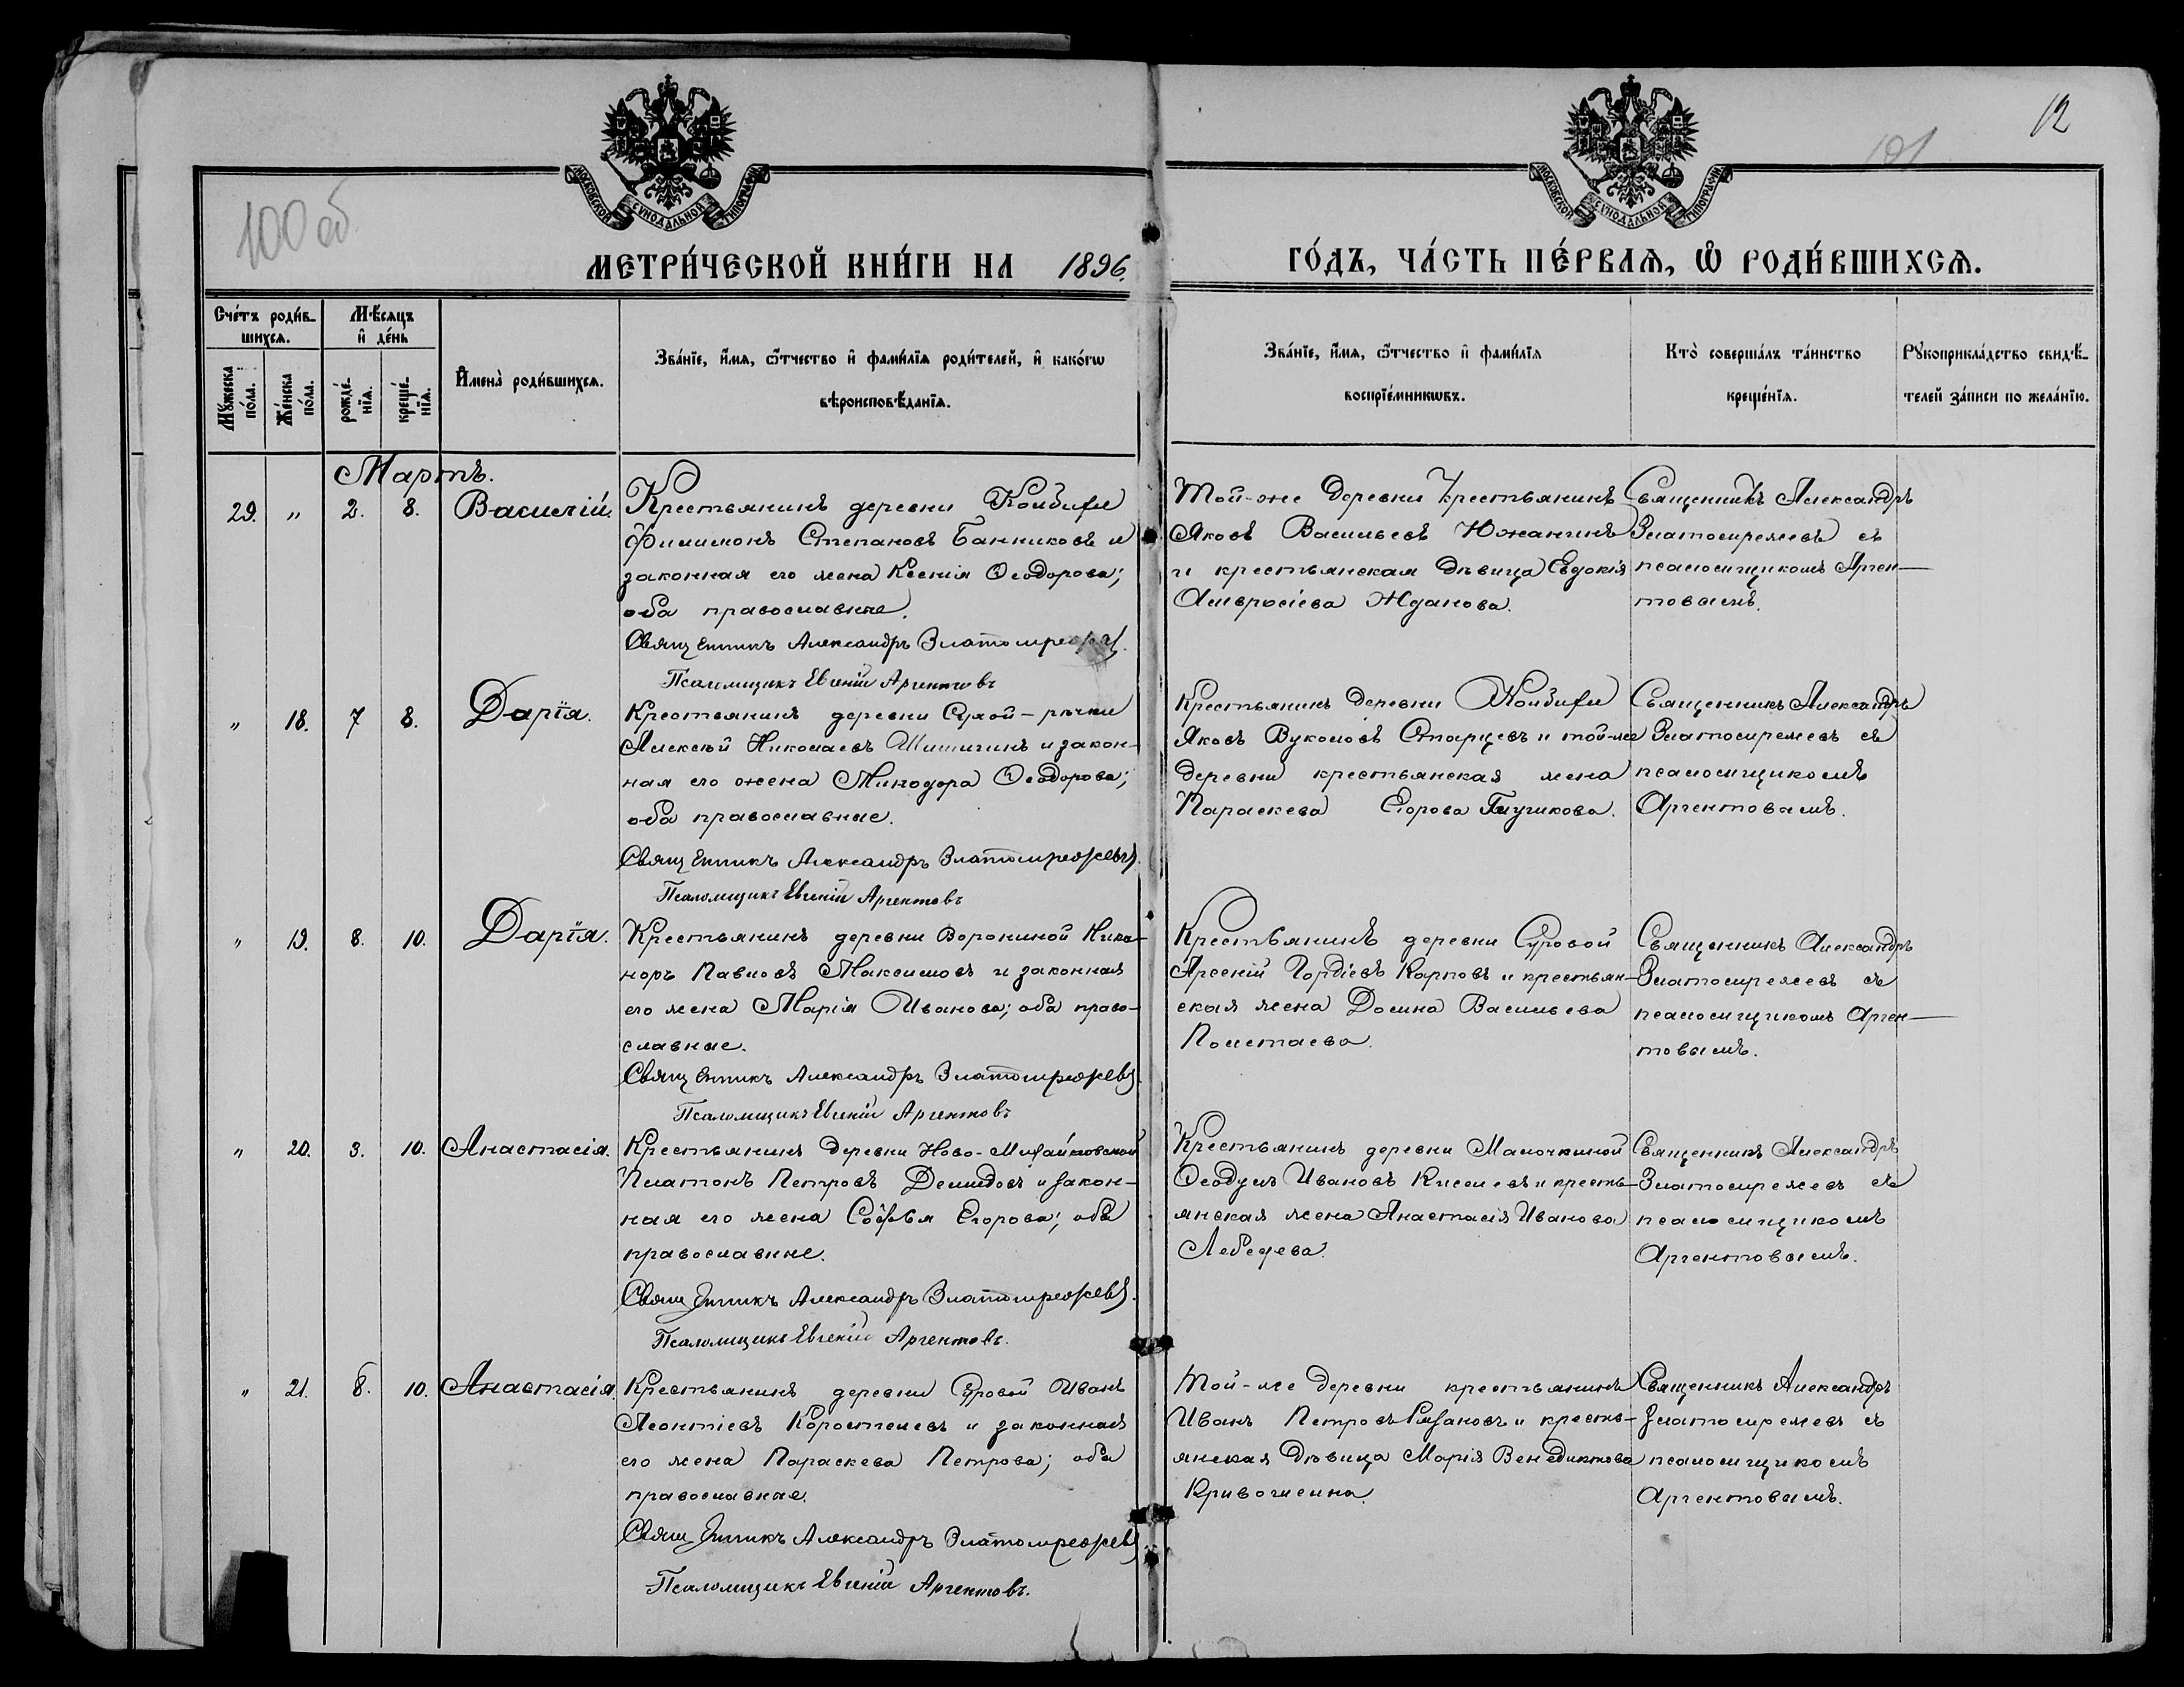 12
101
100 об
МОСКОВСКОЙ СѴНОДАЛЬНОЙ ТИПОГРАФІИ
МОСКОВСКОЙ СѴНОДАЛЬНОЙ ТИПОГРАФІИ
МЕТРИ́ЧЕСКОЙ КНИ́ГИ НА 1896.
ГО́ДЪ, ЧА́СТЬ ПЕ́РВАѦ, Ѡ РОДИ́ВШИХСѦ.
Сче́тъ роди́в-
шихсѧ.
Мѣ́сѧцъ
и де́нь
Му́жеска
по́ла.
Же́нска
по́ла.
рожде́-
нїѧ.
креще́-
нїѧ.
Имена̀ роди́вшихсѧ.
Зва́нїе, и́мѧ, ѻ́тчество и фами́лїѧ роди́телей, и како́гѡ
вѣроисповѣ́данїѧ.
Зва́нїе, и́мѧ, ѻ́тчество и фами́лїѧ
воспрїе́мникѡвъ.
Кто̀ соверша́лъ та́инство
креще́нїѧ.
Рꙋкоприкла́дство свидѣ́-
телей за́писи по жела́нїю.
Мартъ.
29. " 2. 8. Василій.
Крестьянинъ деревни
Филимонъ Степановъ Банниковъ и
законная его жена Ксенія Ѳеодорова;
оба православные.
Священникъ Александръ
Псаломщикъ Евгеній Аргентовъ
Той-же деревни крестьянинъ
Яковъ Васильевъ Южанинъ
и крестьянская дѣвица Евдокія
Амвросіева Жданова.
Священникъ Александръ
съ
псаломщикомъ Арген-
товымъ.
" 18. 7 8. Дарія.
Крестьянинъ деревни Сухой-рѣчки
Алексѣй Николаевъ Шишигинъ и закон-
ная его жена Минодора Ѳеодорова;
оба православные.
Священникъ Александръ
Псаломщикъ Евгеній Аргентовъ
Крестьянинъ деревни
Яковъ Вуколовъ Старцевъ и той-же
деревни крестьянская жена
Параскева Егорова
Священникъ Александръ
съ
псаломщикомъ
Аргентовымъ.
" 19. 8. 10. Дарія.
Крестьянинъ деревни Ворониной Ника-
норъ Павловъ Максимовъ и законная
его жена Марія Иванова; оба право-
славные.
Священникъ Александръ
Псаломщикъ Евгеній Аргентовъ
Крестьянинъ деревни Суровой
Арсеній Гордіевъ Карповъ и крестьян-
ская жена Домна Васильева
Полетаева.
Священникъ Александръ
съ
псаломщикомъ Арген-
товымъ.
" 20. 3. 10. Анастасія.
Крестьянинъ деревни Ново-Михайловской
Платонъ Петровъ Демидовъ и закон-
ная его жена Софья Егорова; оба
православные.
Священникъ Александръ
Псаломщикъ Евгеній Аргентовъ.
Крестьянинъ деревни Малочкиной
Ѳеодулъ Ивановъ Киселевъ и кресть-
янская жена Анастасія Иванова
Лебедева.
Священникъ Александръ
съ
псаломщикомъ
Аргентовымъ.
" 21. 8. 10. Анастасія.
Крестьянинъ деревни Суровой Иванъ
Леонтіевъ Коростелевъ и законная
его жена Параскева Петрова; оба
православные.
Священникъ Александръ
Псаломщикъ Евгеній Аргентовъ.
Той-же деревни крестьянинъ
Иванъ Петровъ Рязановъ и кресть-
янская дѣвица Марія Венедиктова
Кривошеина.
Священникъ Александръ
съ
псаломщикомъ
Аргентовымъ.